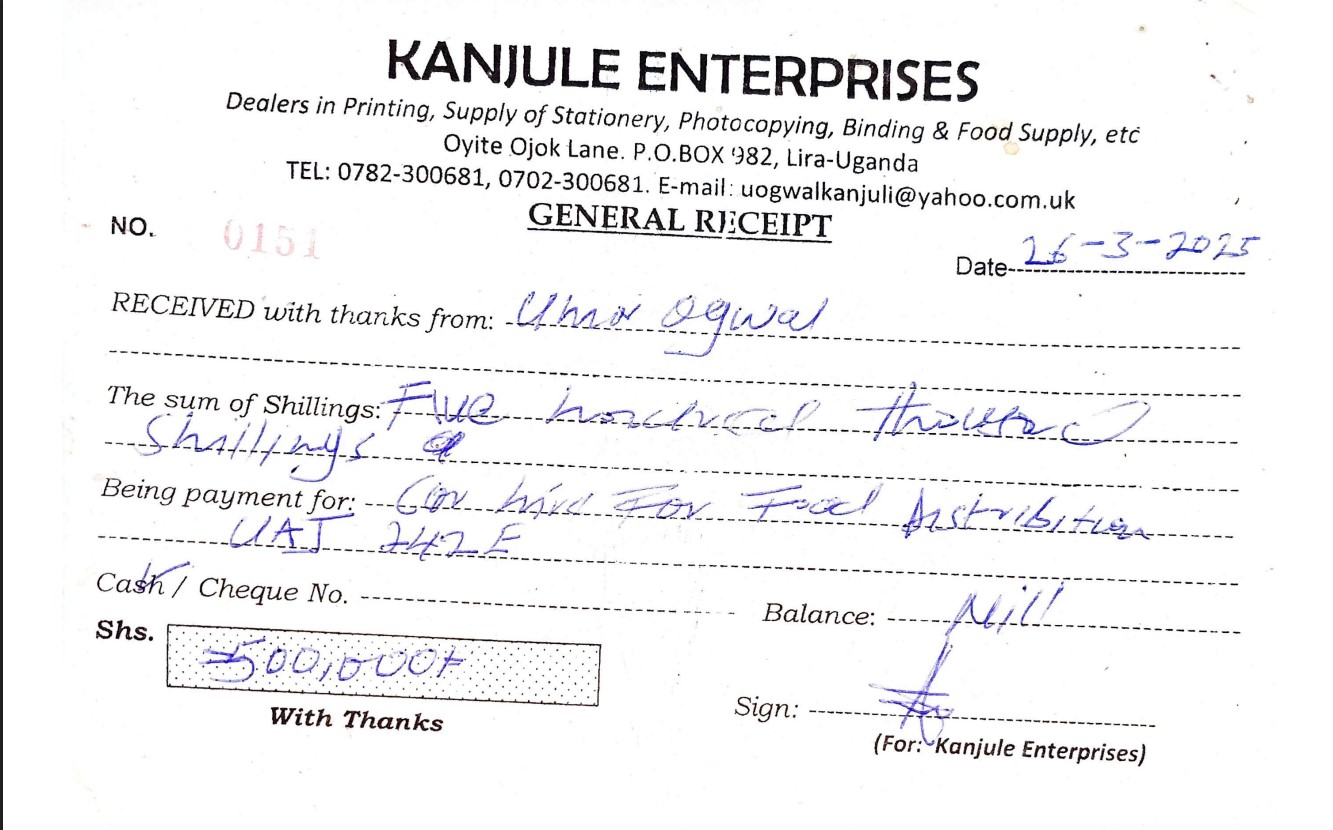 KANJULE ENTERPRISES
Dealers in Printing, Supply of Stationery, Photocopying, Binding & Food Supply, etc
Oyite Ojok Lane. P.O.BOX 982, Lira-Uganda
TEL: 0782-300681, 0702-300681. E-mail: uogwalkanjuli@yahoo.com.uk
GENERAL RECEIPT
NO. 0151
Date 26-3-2025
RECEIVED with thanks from: Umar Ogwal
The sum of Shillings: Five hundred thousand
Shillings
Being payment for: Car hire For Food distribution
UAJ 242E
Cash / Cheque No.
Balance: Nill
Shs. =500,000/=
With Thanks
Sign:
(For: Kanjule Enterprises)